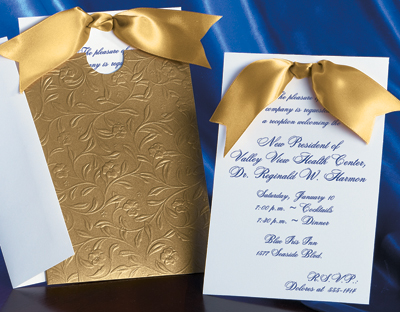 The pleasure of
company is requ
The pleasure
company is reques
a reception welcoming the
New President of
Valley View Health Center,
Dr. Reginald W. Harmon
Saturday, January 10
7:00 p.m. ~ Cocktails
7:30 p.m. ~ Dinner
Blue Iris Inn
1577 Seaside Blvd.
R.S.V.P.
Dolores at 555-1818